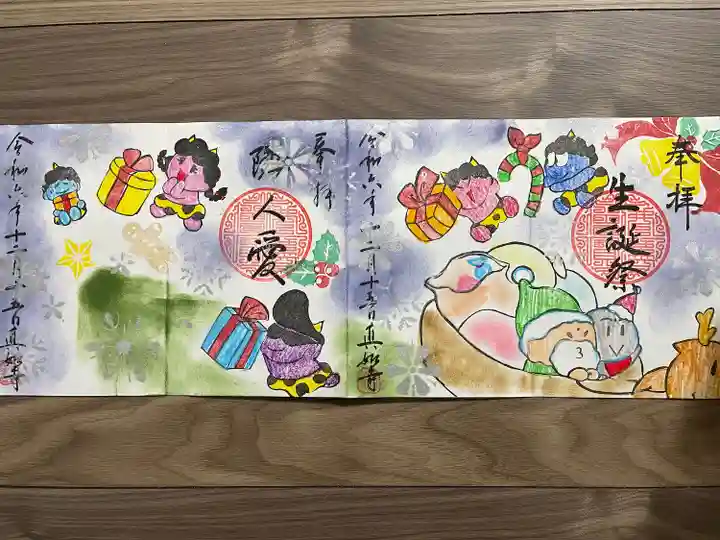 奉拝
生誕祭
令和六年十二月十五日真如寺
奉拝
隣人愛
令和六年十二月十五日真如寺